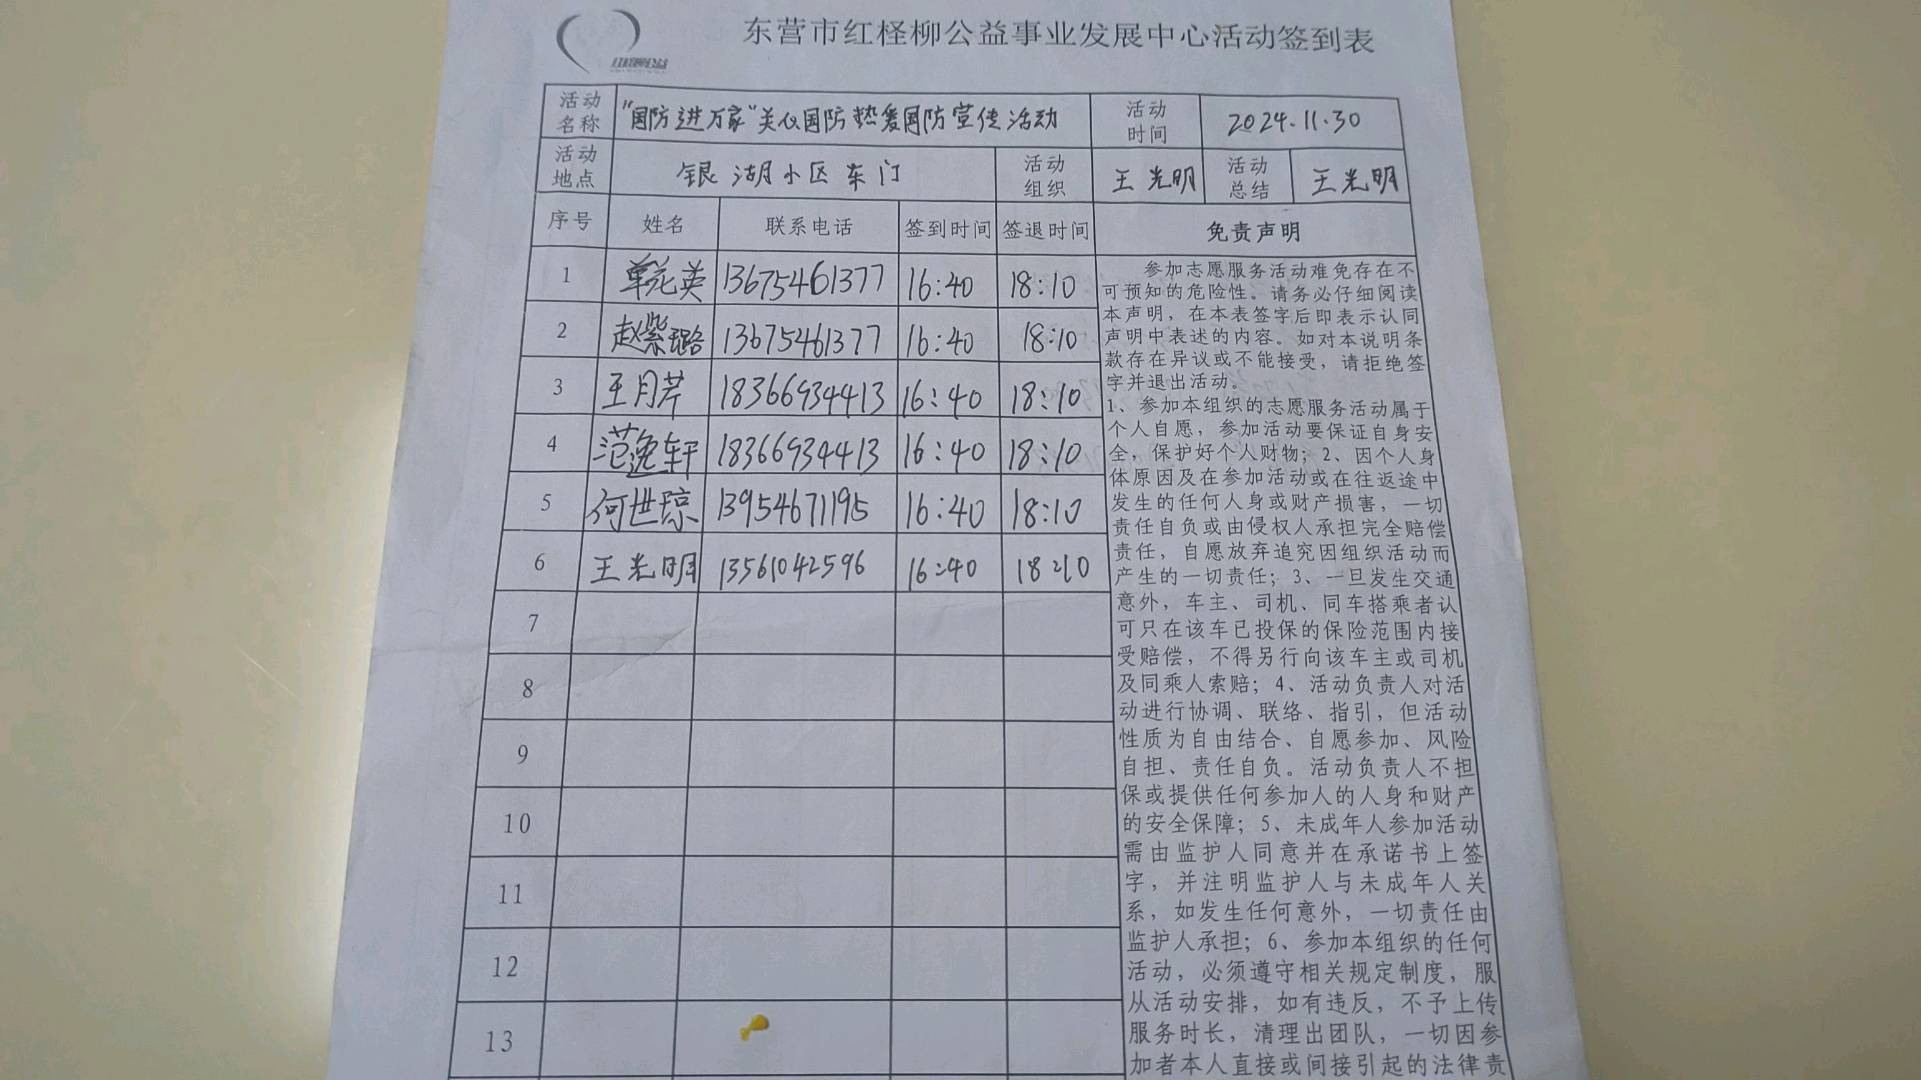 东营市红柽柳公益事业发展中心活动签到表
红柽柳公益
活动名称 "国防进万家"关心国防热爱国防宣传活动 活动时间 2024.11.30
活动地点 银湖小区东门 活动组织 王光明 活动总结 王光明
序号 姓名 联系电话 签到时间 签退时间 免责声明
1 单元英 13675461377 16:40 18:10
2 赵紫璐 13675461377 16:40 18:10
3 王月芹 18366934413 16:40 18:10
4 范逸轩 18366934413 16:40 18:10
5 何世琼 13954671195 16:40 18:10
6 王光明 13561042596 16:40 18:10
7
8
9
10
11
12
13
参加志愿服务活动难免存在不
可预知的危险性。请务必仔细阅读
本声明，在本表签字后即表示认同
声明中表述的内容。如对本说明条
款存在异议或不能接受，请拒绝签
字并退出活动。
1、参加本组织的志愿服务活动属于
个人自愿，参加活动要保证自身安
全，保护好个人财物；2、因个人身
体原因及在参加活动或在往返途中
发生的任何人身或财产损害，一切
责任自负或由侵权人承担完全赔偿
责任，自愿放弃追究因组织活动而
产生的一切责任；3、一旦发生交通
意外，车主、司机、同车搭乘者认
可只在该车已投保的保险范围内接
受赔偿，不得另行向该车主或司机
及同乘人索赔；4、活动负责人对活
动进行协调、联络、指引，但活动
性质为自由结合、自愿参加、风险
自担、责任自负。活动负责人不担
保或提供任何参加人的人身和财产
的安全保障；5、未成年人参加活动
需由监护人同意并在承诺书上签
字，并注明监护人与未成年人关
系，如发生任何意外，一切责任由
监护人承担；6、参加本组织的任何
活动，必须遵守相关规定制度，服
从活动安排，如有违反，不予上传
服务时长，清理出团队，一切因参
加者本人直接或间接引起的法律责